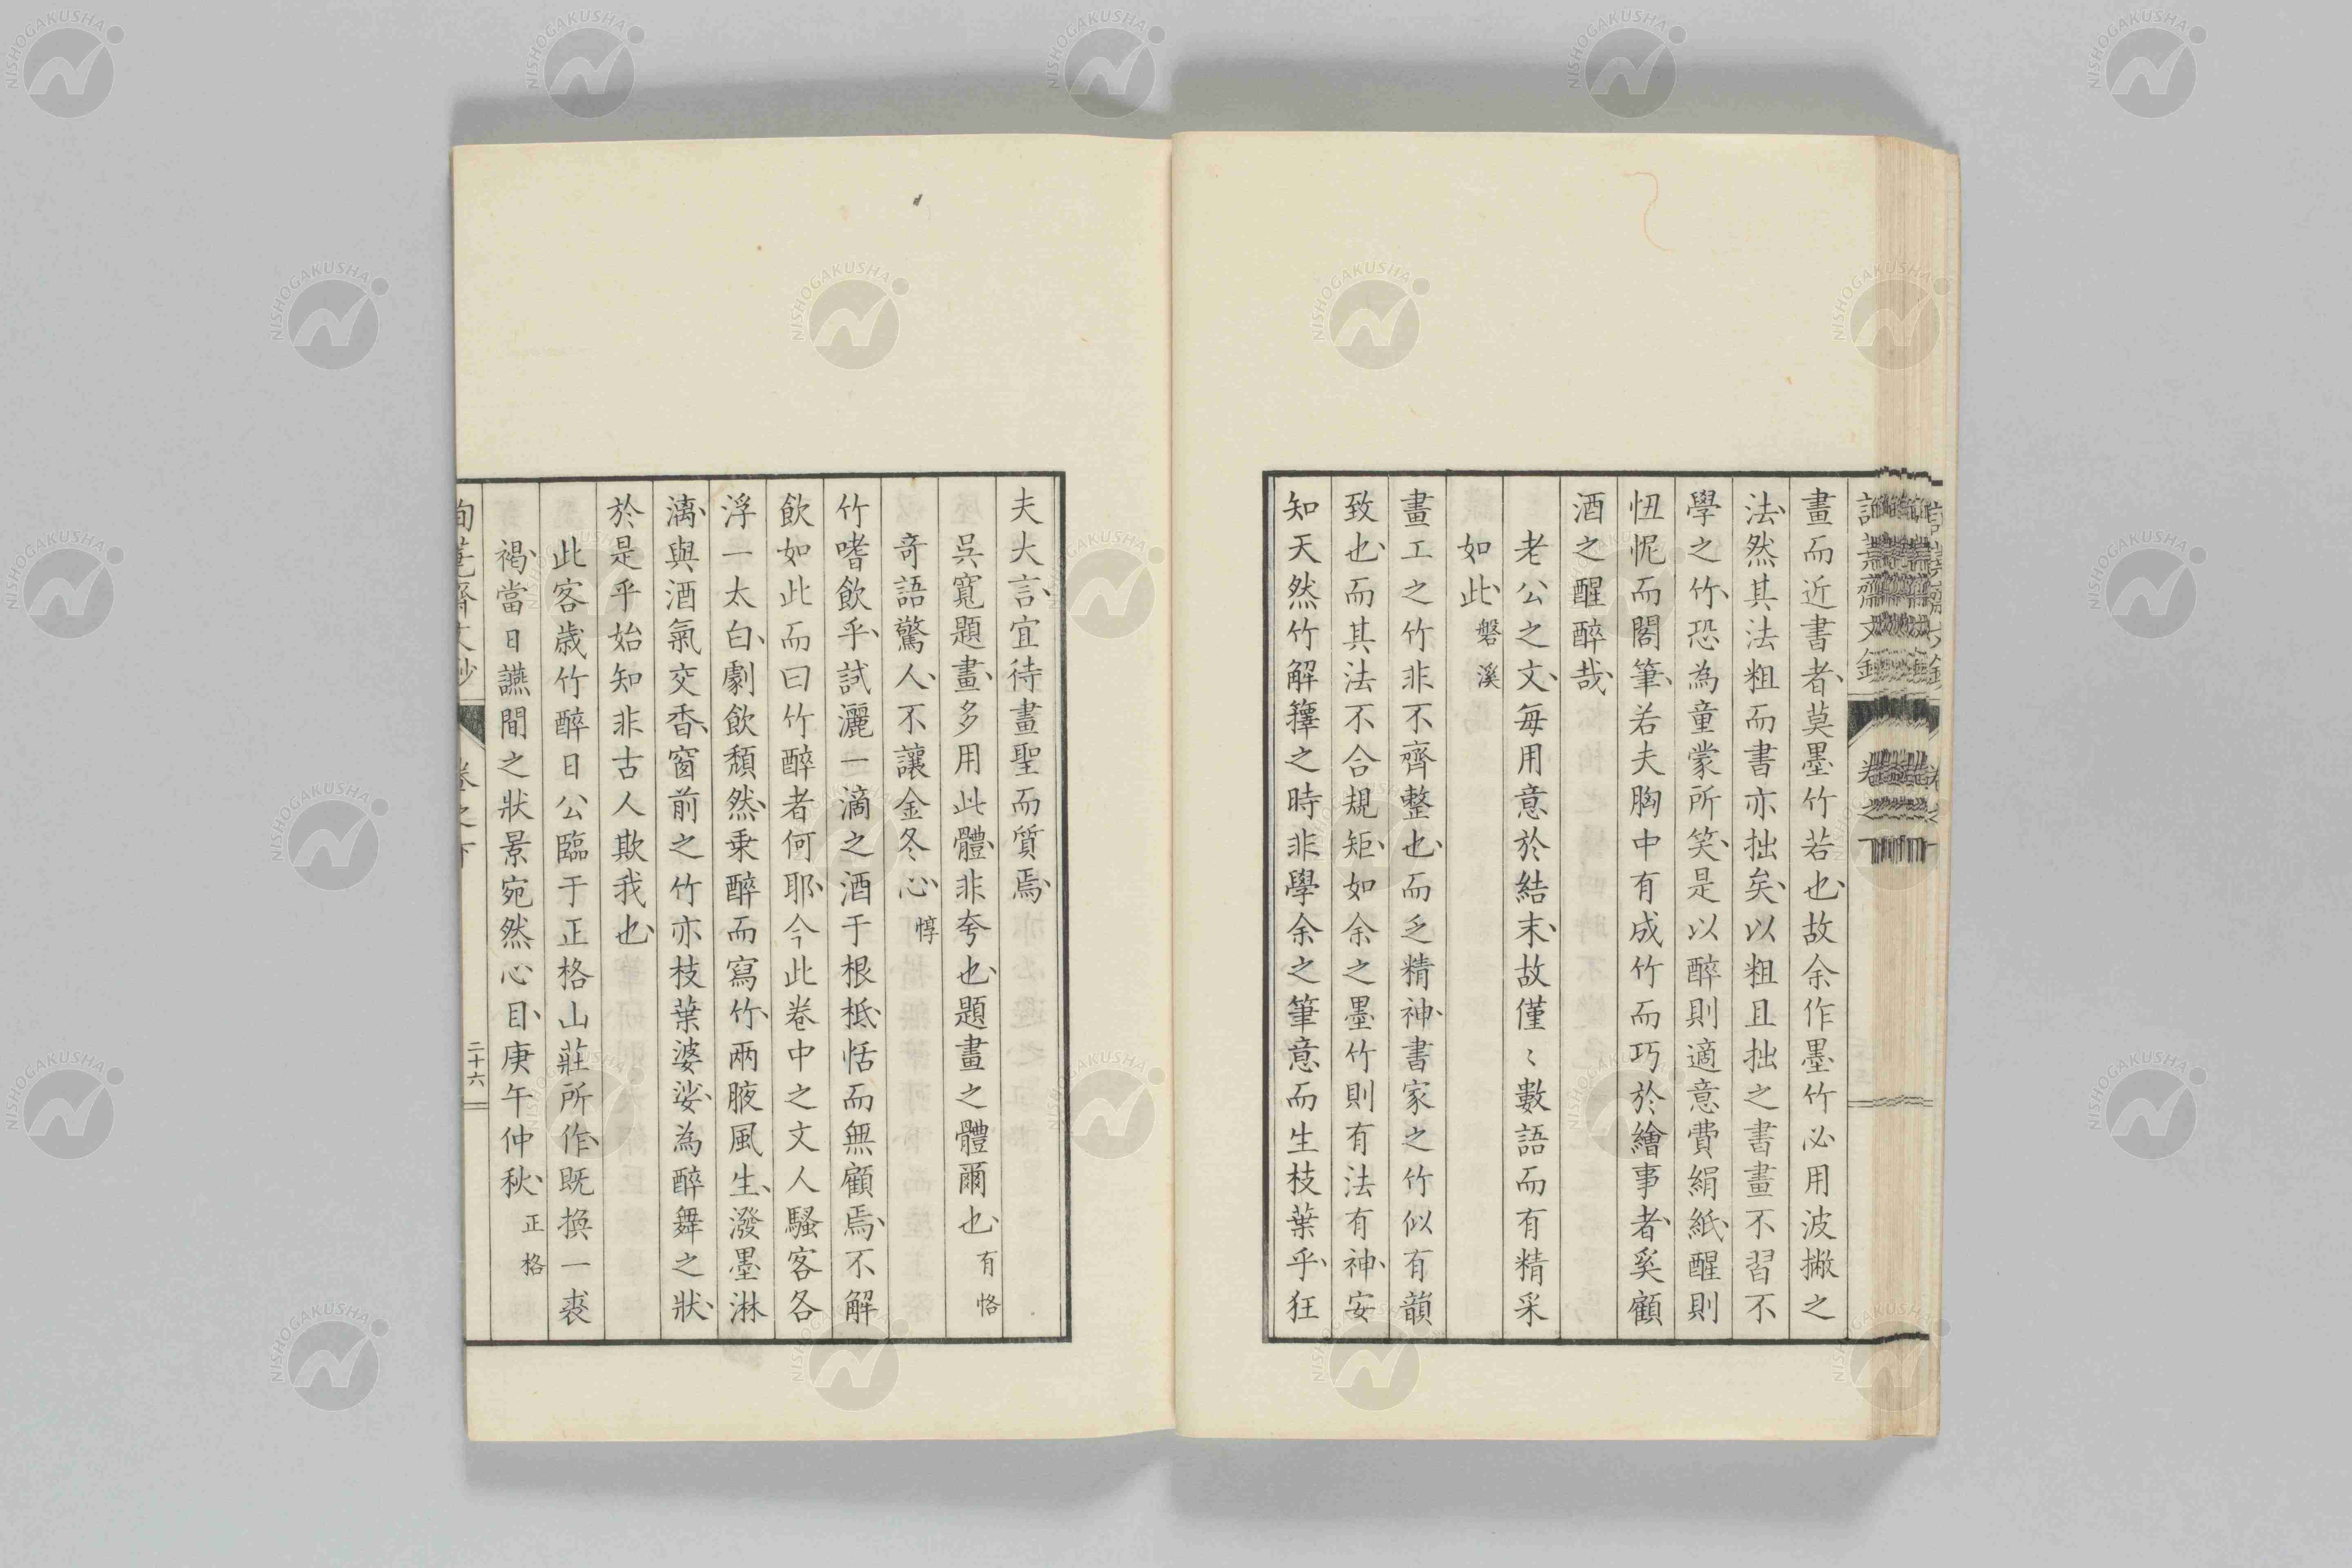 畫而近書者、莫墨竹若也、故余作墨竹必用波撇之
法、然其法粗而書亦拙矣、以粗且拙之書畫不習不
學之竹、恐為童蒙所笑、是以醉則適意費絹紙、醒則
忸怩而閣筆、若夫胸中有成竹而巧於繪事者、奚顧
酒之醒醉哉、
老公之文、每用意於結末、故僅〻數語而有精采
如此、磐溪
畫工之竹非不齊整也、而乏精神、書家之竹似有韻
致也、而其法不合規矩、如余之墨竹則有法有神、安
知天然竹解籜之時非學余之筆意而生枝葉乎、狂
夫大言、宜待畫聖而質焉、
吳寬題畫、多用此體、非夸也、題畫之體爾也、有恪
奇語驚人、不讓金冬心、惇
竹嗜飲乎、試灑一滴之酒于根柢、恬而無顧焉、不解
飲如此而曰竹醉者何耶、今此卷中之文人騷客各
浮一太白、劇飲頹然、乗醉而寫竹、兩腋風生、潑墨淋
漓、與酒氣交香、窗前之竹亦枝葉婆娑、為醉舞之狀、
於是乎始知非古人欺我也、
此客歲竹醉日公臨于正格山莊所作、既換一裘
褐、當日讌間之狀景宛然心目、庚午仲秋、正格
卷之下
二十六
NISHOGAKUSHA